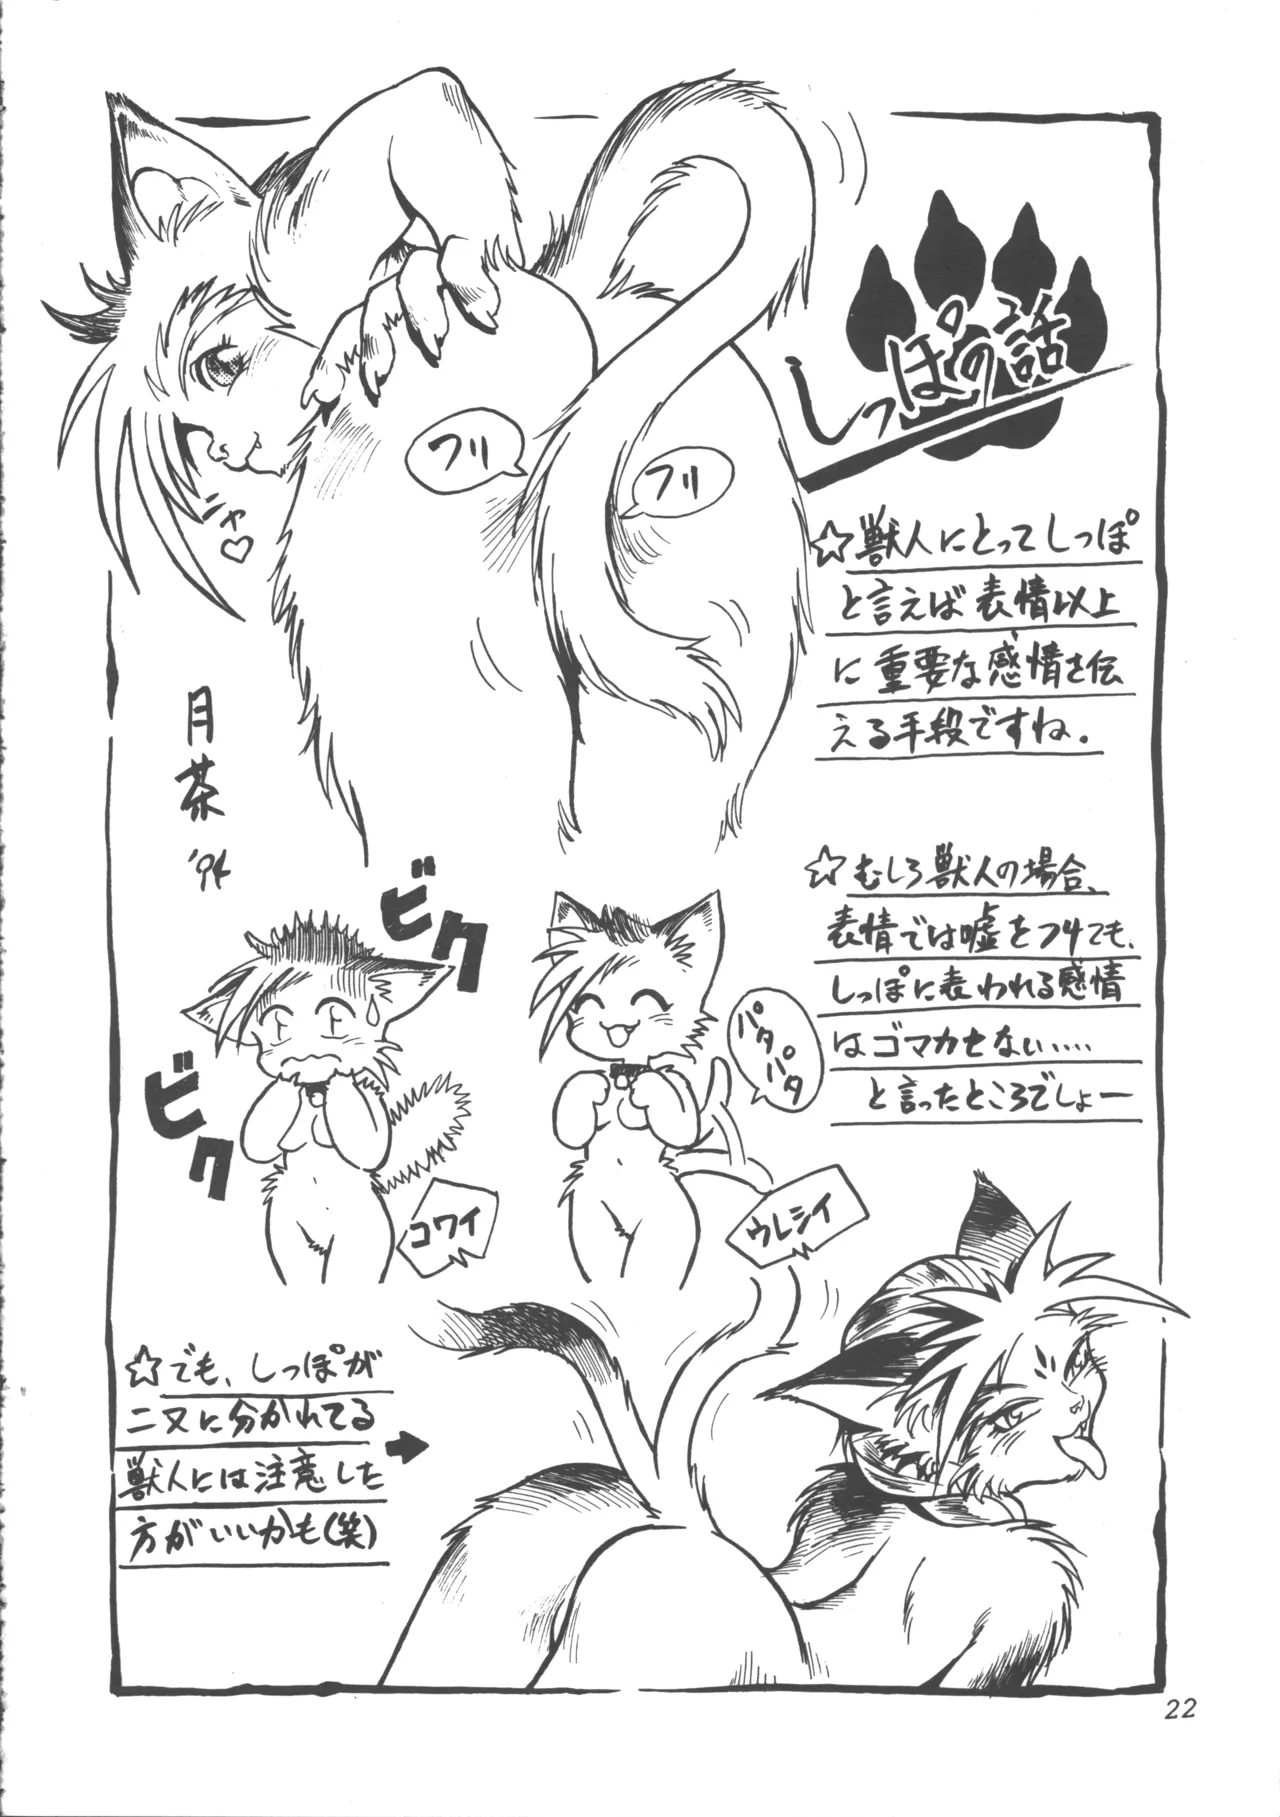 しっぽの話
フリ
フリ
ニャ♡
☆獣人にとってしっぽ
と言えば表情以上
に重要な感情を伝
える手段ですね。
月茶
'94
☆むしろ獣人の場合、
表情では嘘をつけても、
しっぽに表われる感情
はゴマカせない……
と言ったところでしょー
ビク
ビク
パタパタ
コワイ
ウレシイ
☆でも、しっぽが
二又に分かれてる
獣人には注意した
方がいいかも(笑)
22